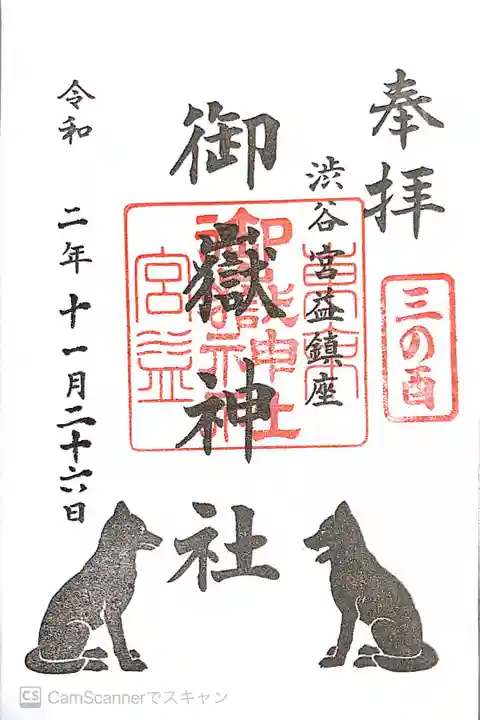 奉拝
三の酉
渋谷宮益鎮座
御嶽神社
令和二年十一月二十六日
宮益
CS CamScannerでスキャン